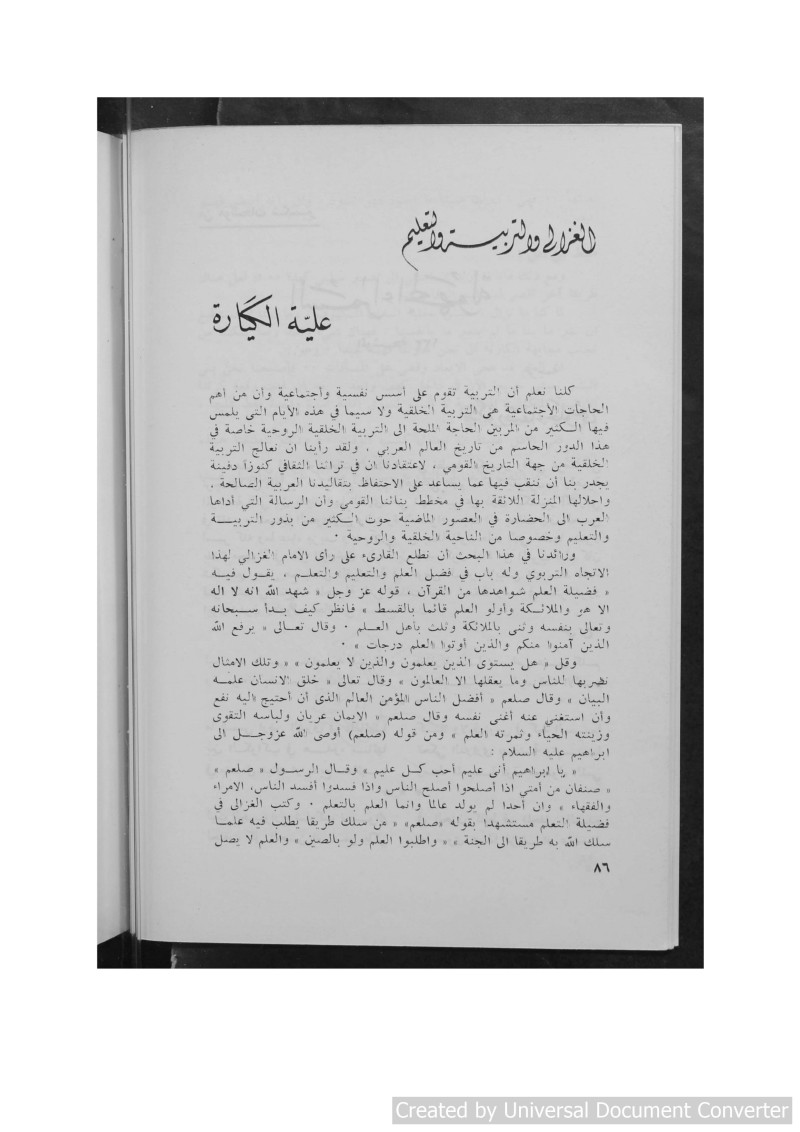 الغزالي والتربية والتعليم
عليّة الكيارة
كلنا نعلم أن التربية تقوم على أسس نفسية وأجتماعية وأن من أهم
الحاجات الأجتماعية هي التربية الخلقية ولا سيما في هذه الأيام التى يلمس
فيها الكثير من المربين الحاجة الملحة الى التربية الخلقية الروحية خاصة في
هذا الدور الحاسم من تاريخ العالم العربي . ولقد رأينا ان نعالج التربية
الخلقية من جهة التاريخ القومي ، لاعتقادنا ان في تراثنا الثقافي كنوزا دفينة
يجدر بنا أن ننقب فيها عما يساعد على الاحتفاظ بتقاليدنا العربية الصالحة .
واحلالها المنزلة اللائقة بها في مخطط بنائنا القومي وأن الرسالة التي أداها
العرب الى الحضارة في العصور الماضية حوت الكثير من بذور التربية
والتعليم وخصوصا من الناحية الخلقية والروحية .
ورائدنا في هذا البحث أن نطلع القارىء على رأى الامام الغزالي لهذا
الاتجاه التربوي وله باب في فضل العلم والتعليم والتعلم ، يقول فيه
« فضيلة العلم شواهدها من القرآن ، قوله عز وجل « شهد الله انه لا اله
الا هو والملائكة وأولو العلم قائما بالقسط » فانظر كيف بدأ سبحانه
وتعالى بنفسه وثنى بالملائكة وثلث بأهل العلم . وقال تعالى « يرفع الله
الذين آمنوا منكم والذين أوتوا العلم درجات » .
وقل « هل يستوى الذين يعلمون والذين لا يعلمون » « وتلك الامثال
نضربها للناس وما يعقلها الا العالمون » وقال تعالى « خلق الانسان علمه
البيان » وقال صلعم « أفضل الناس المؤمن العالم الذى أن أحتيج اليه نفع
وأن استغنى عنه أغنى نفسه وقال صلعم « الايمان عريان ولباسه التقوى
وزينته الحياء وثمرته العلم » ومن قوله (صلعم) أوصى الله عزوجل الى
ابراهيم عليه السلام :
« يا ابراهيم أنى عليم أحب كل عليم » وقال الرسول « صلعم »
« صنفان من أمتي اذا أصلحوا أصلح الناس واذا فسدوا أفسد الناس، الامراء
والفقهاء » وان أحدا لم يولد عالما وانما العلم بالتعلم . وكتب الغزالى في
فضيلة التعلم مستشهدا بقوله «صلعم» « من سلك طريقا يطلب فيه علما
سلك الله به طريقا الى الجنة » « واطلبوا العلم ولو بالصين » والعلم لا يصل
٨٦
Created by Universal Document Converter